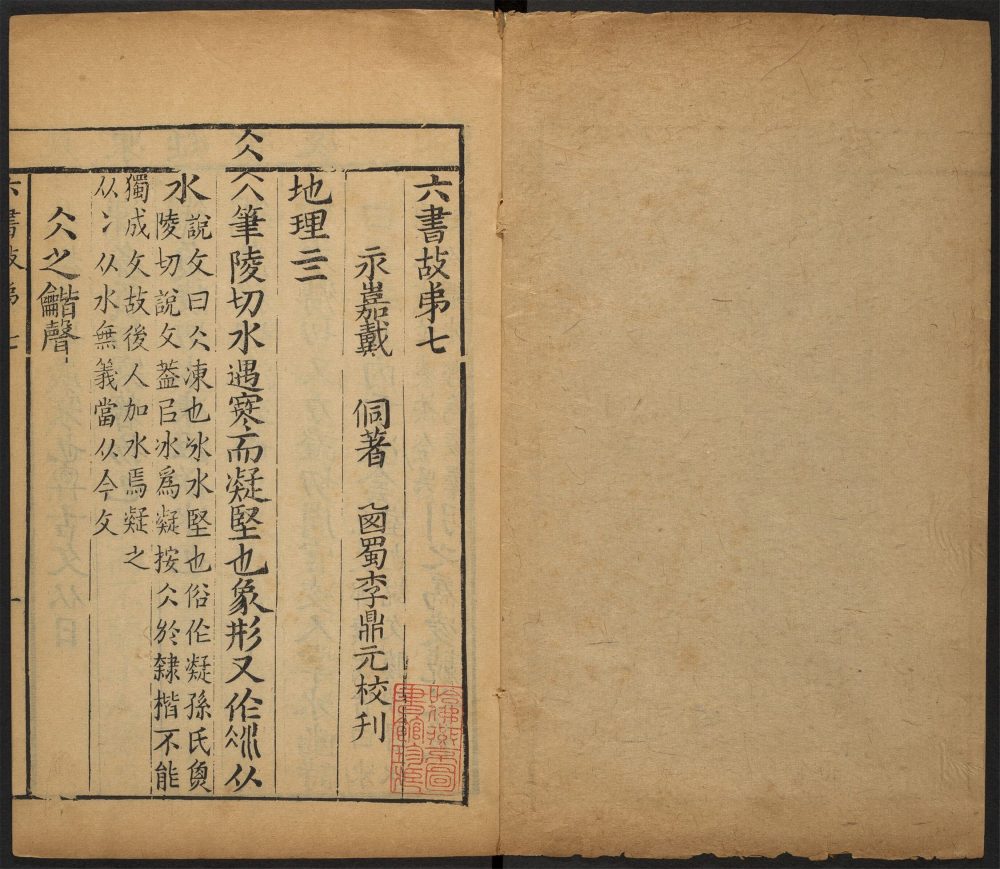 六書故弟七
永嘉戴 侗著 西蜀李鼎元校刊
地理三
仌
仌筆陵切水遇寒而凝堅也象形又作冰从
水說文曰仌凍也冰水堅也俗作凝孫氏魚
陵切說文葢㠯冰爲凝按仌於隸楷不能
獨成文故後人加水焉凝之
从冫从水無義當从今文
仌之龤聲
六書故弟七
一
哈佛燕京圖
書館珍藏